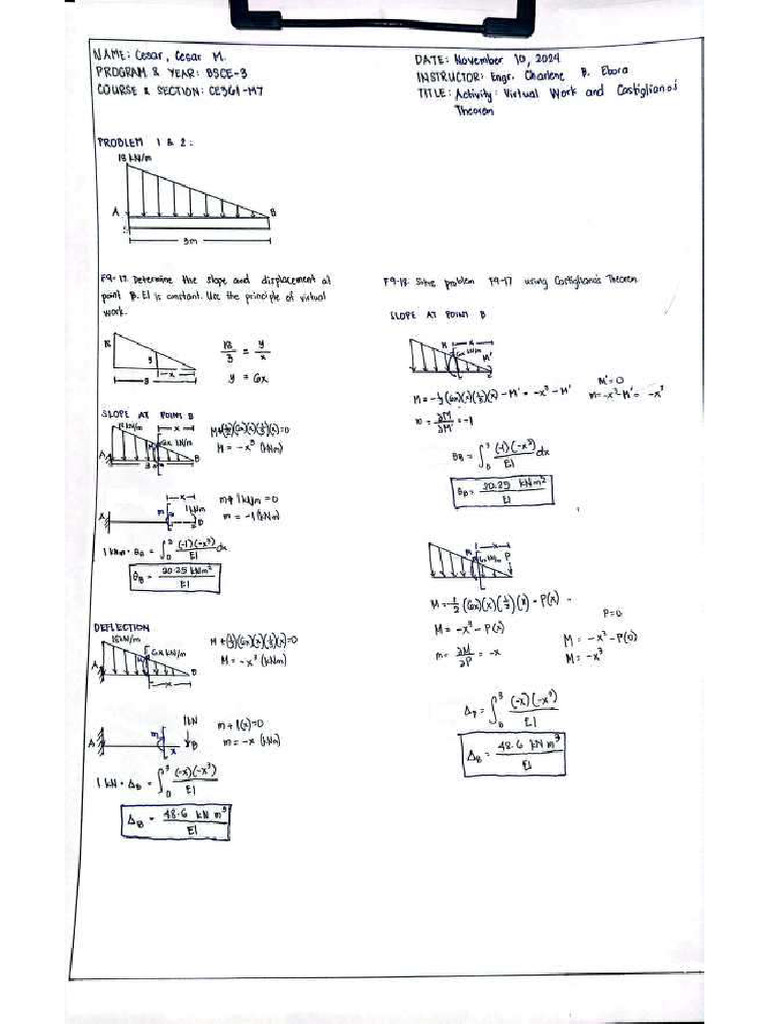 NAME: Cesar, Cesar M.
PROGRAM & YEAR: BSCE-3
COURSE & SECTION: CE361-M7
DATE: November 10, 2024
INSTRUCTOR: Engr. Charlene B. Ebora
TITLE: Activity: Virtual Work and Castiglianos
Theorem
PROBLEM 1 & 2:
18 kN/m
A
B
3m
F9-17. Determine the slope and displacement at
point B. EI is constant. Use the principle of virtual
work.
18
y
x
3
18/3 = y/x
y = 6x
SLOPE AT POINT B
18 kN/m
6x kN/m
x
A
B
3m
M + (1/2)(6x)(x)(1/3)(x) = 0
M = -x³ (kNm)
x
m
1 kNm
B
m + 1 kNm = 0
m = -1 (kNm)
1 kNm · θB = ∫₀³ (-1)(-x³)/EI dx
θB = 20.25 kNm²/EI
DEFLECTION
18 kN/m
6x kN/m
A
B
x
M + (1/2)(6x)(x)(1/3)(x) = 0
M = -x³ (kNm)
1 kN
A
m
x
B
m + 1(x) = 0
m = -x (kNm)
1 kN · ΔB = ∫₀³ (-x)(-x³)/EI
ΔB = 48.6 kN m³/EI
F9-18. Solve problem F9-17 using Castigliano's Theorem
SLOPE AT POINT B
x
6x kN/m
M'
M = -1/2 (6x)(x)(1/3)(x) - M' = -x³ - M'
M' = 0
M = -x³ - M' = -x³
m = ∂M/∂M' = -1
θB = ∫₀³ (-1)(-x³)/EI dx
θB = 20.25 kNm²/EI
x
6x kN/m
P
M = -1/2 (6x)(x)(1/3)(x) - P(x)
M = -x³ - P(x)
m = ∂M/∂P = -x
P = 0
M = -x³ - P(0)
M = -x³
ΔB = ∫₀³ (-x)(-x³)/EI
ΔB = 48.6 kN m³/EI